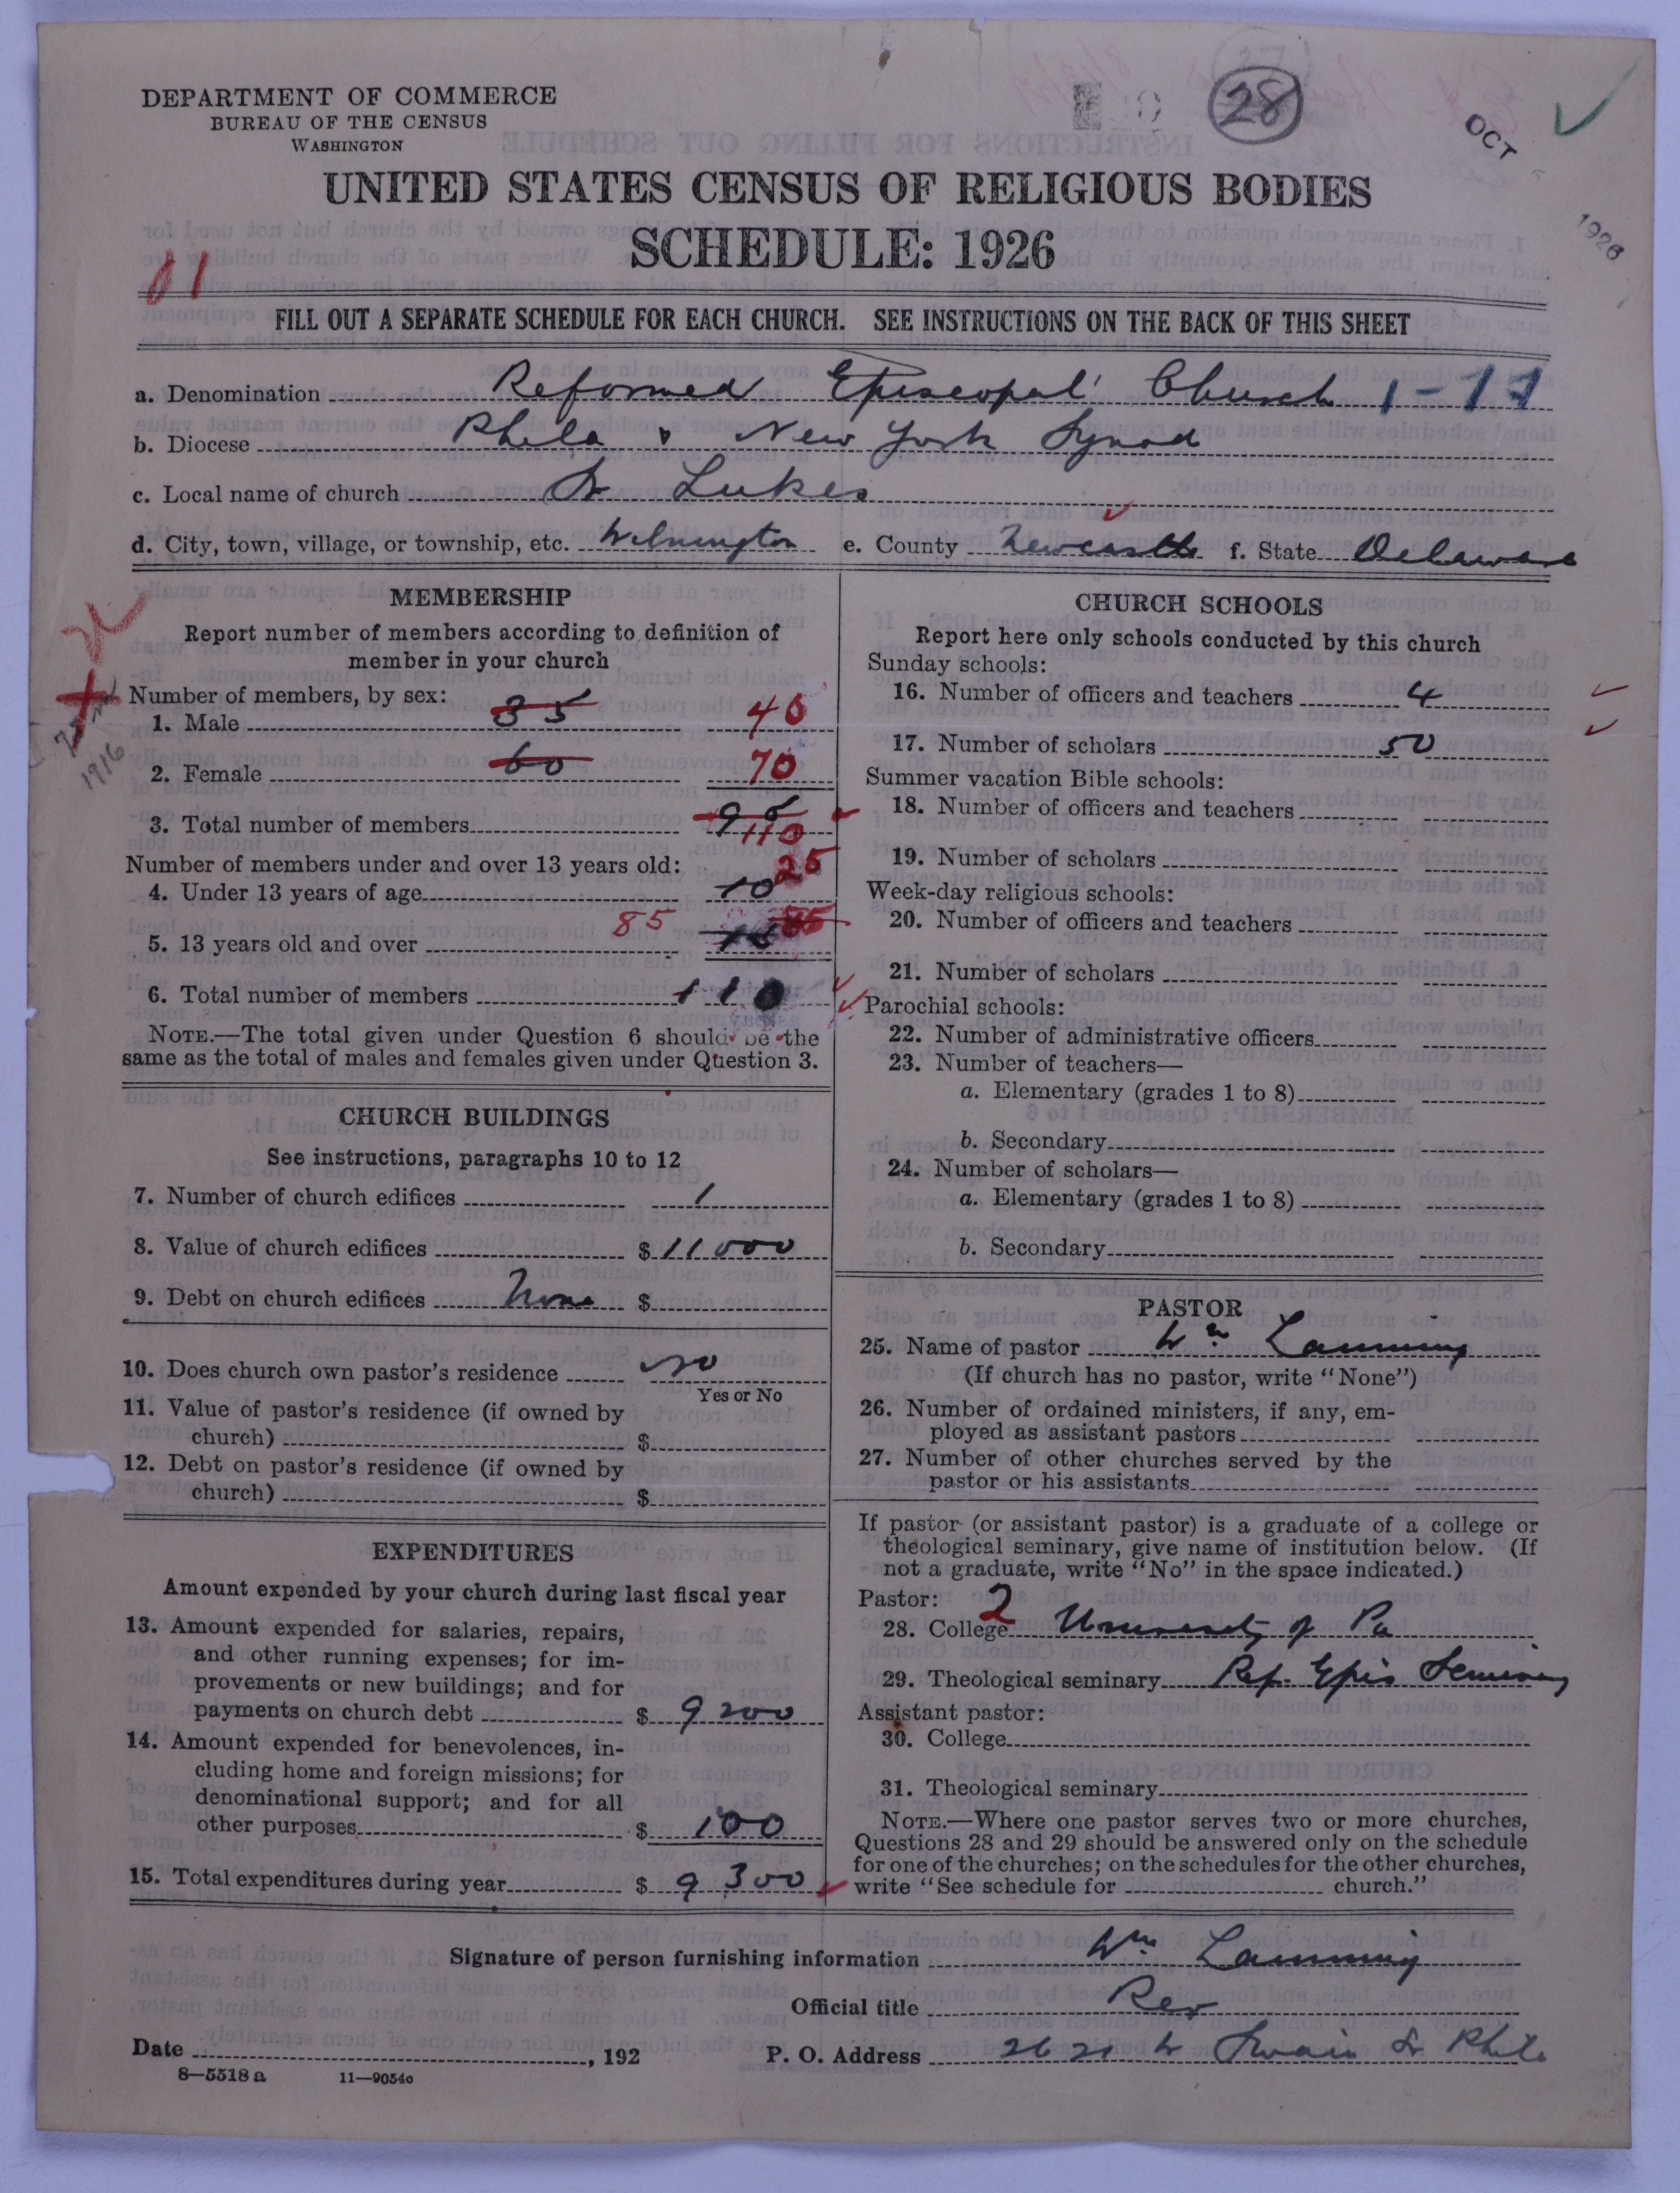 DEPARTMENT OF COMMERCE
BUREAU OF THE CENSUS
WASHINGTON
28
OCT
1926
UNITED STATES CENSUS OF RELIGIOUS BODIES
SCHEDULE: 1926
01
FILL OUT A SEPARATE SCHEDULE FOR EACH CHURCH. SEE INSTRUCTIONS ON THE BACK OF THIS SHEET
a. Denomination Reformed Episcopal Church 1-17
b. Diocese Phila & New York Synod
c. Local name of church St Lukes
d. City, town, village, or township, etc. Wilmington e. County Newcastle f. State Delaware
MEMBERSHIP
Report number of members according to definition of
member in your church
Number of members, by sex:
1. Male 35 40
1916
2. Female 60 70
3. Total number of members 95 110
Number of members under and over 13 years old:
4. Under 13 years of age 10 25
5. 13 years old and over 85 85
6. Total number of members 110
NOTE.—The total given under Question 6 should be the
same as the total of males and females given under Question 3.
CHURCH BUILDINGS
See instructions, paragraphs 10 to 12
7. Number of church edifices 1
8. Value of church edifices $ 11000
9. Debt on church edifices None $
10. Does church own pastor's residence no
Yes or No
11. Value of pastor's residence (if owned by
church) $
12. Debt on pastor's residence (if owned by
church) $
EXPENDITURES
Amount expended by your church during last fiscal year
13. Amount expended for salaries, repairs,
and other running expenses; for im-
provements or new buildings; and for
payments on church debt $ 9200
14. Amount expended for benevolences, in-
cluding home and foreign missions; for
denominational support; and for all
other purposes $ 100
15. Total expenditures during year $ 9300
CHURCH SCHOOLS
Report here only schools conducted by this church
Sunday schools:
16. Number of officers and teachers 4
17. Number of scholars 50
Summer vacation Bible schools:
18. Number of officers and teachers
19. Number of scholars
Week-day religious schools:
20. Number of officers and teachers
21. Number of scholars
Parochial schools:
22. Number of administrative officers
23. Number of teachers—
a. Elementary (grades 1 to 8)
b. Secondary
24. Number of scholars—
a. Elementary (grades 1 to 8)
b. Secondary
PASTOR
25. Name of pastor Wm Lamming
(If church has no pastor, write "None")
26. Number of ordained ministers, if any, em-
ployed as assistant pastors
27. Number of other churches served by the
pastor or his assistants
If pastor (or assistant pastor) is a graduate of a college or
theological seminary, give name of institution below. (If
not a graduate, write "No" in the space indicated.)
Pastor: 2
28. College University of Pa
29. Theological seminary Ref. Epis Seminary
Assistant pastor:
30. College
31. Theological seminary
NOTE.—Where one pastor serves two or more churches,
Questions 28 and 29 should be answered only on the schedule
for one of the churches; on the schedules for the other churches,
write "See schedule for church."
Signature of person furnishing information Wm Lamming
Official title Rev
Date , 192 P. O. Address Swain St Phila
8—5518 a 11—9054c